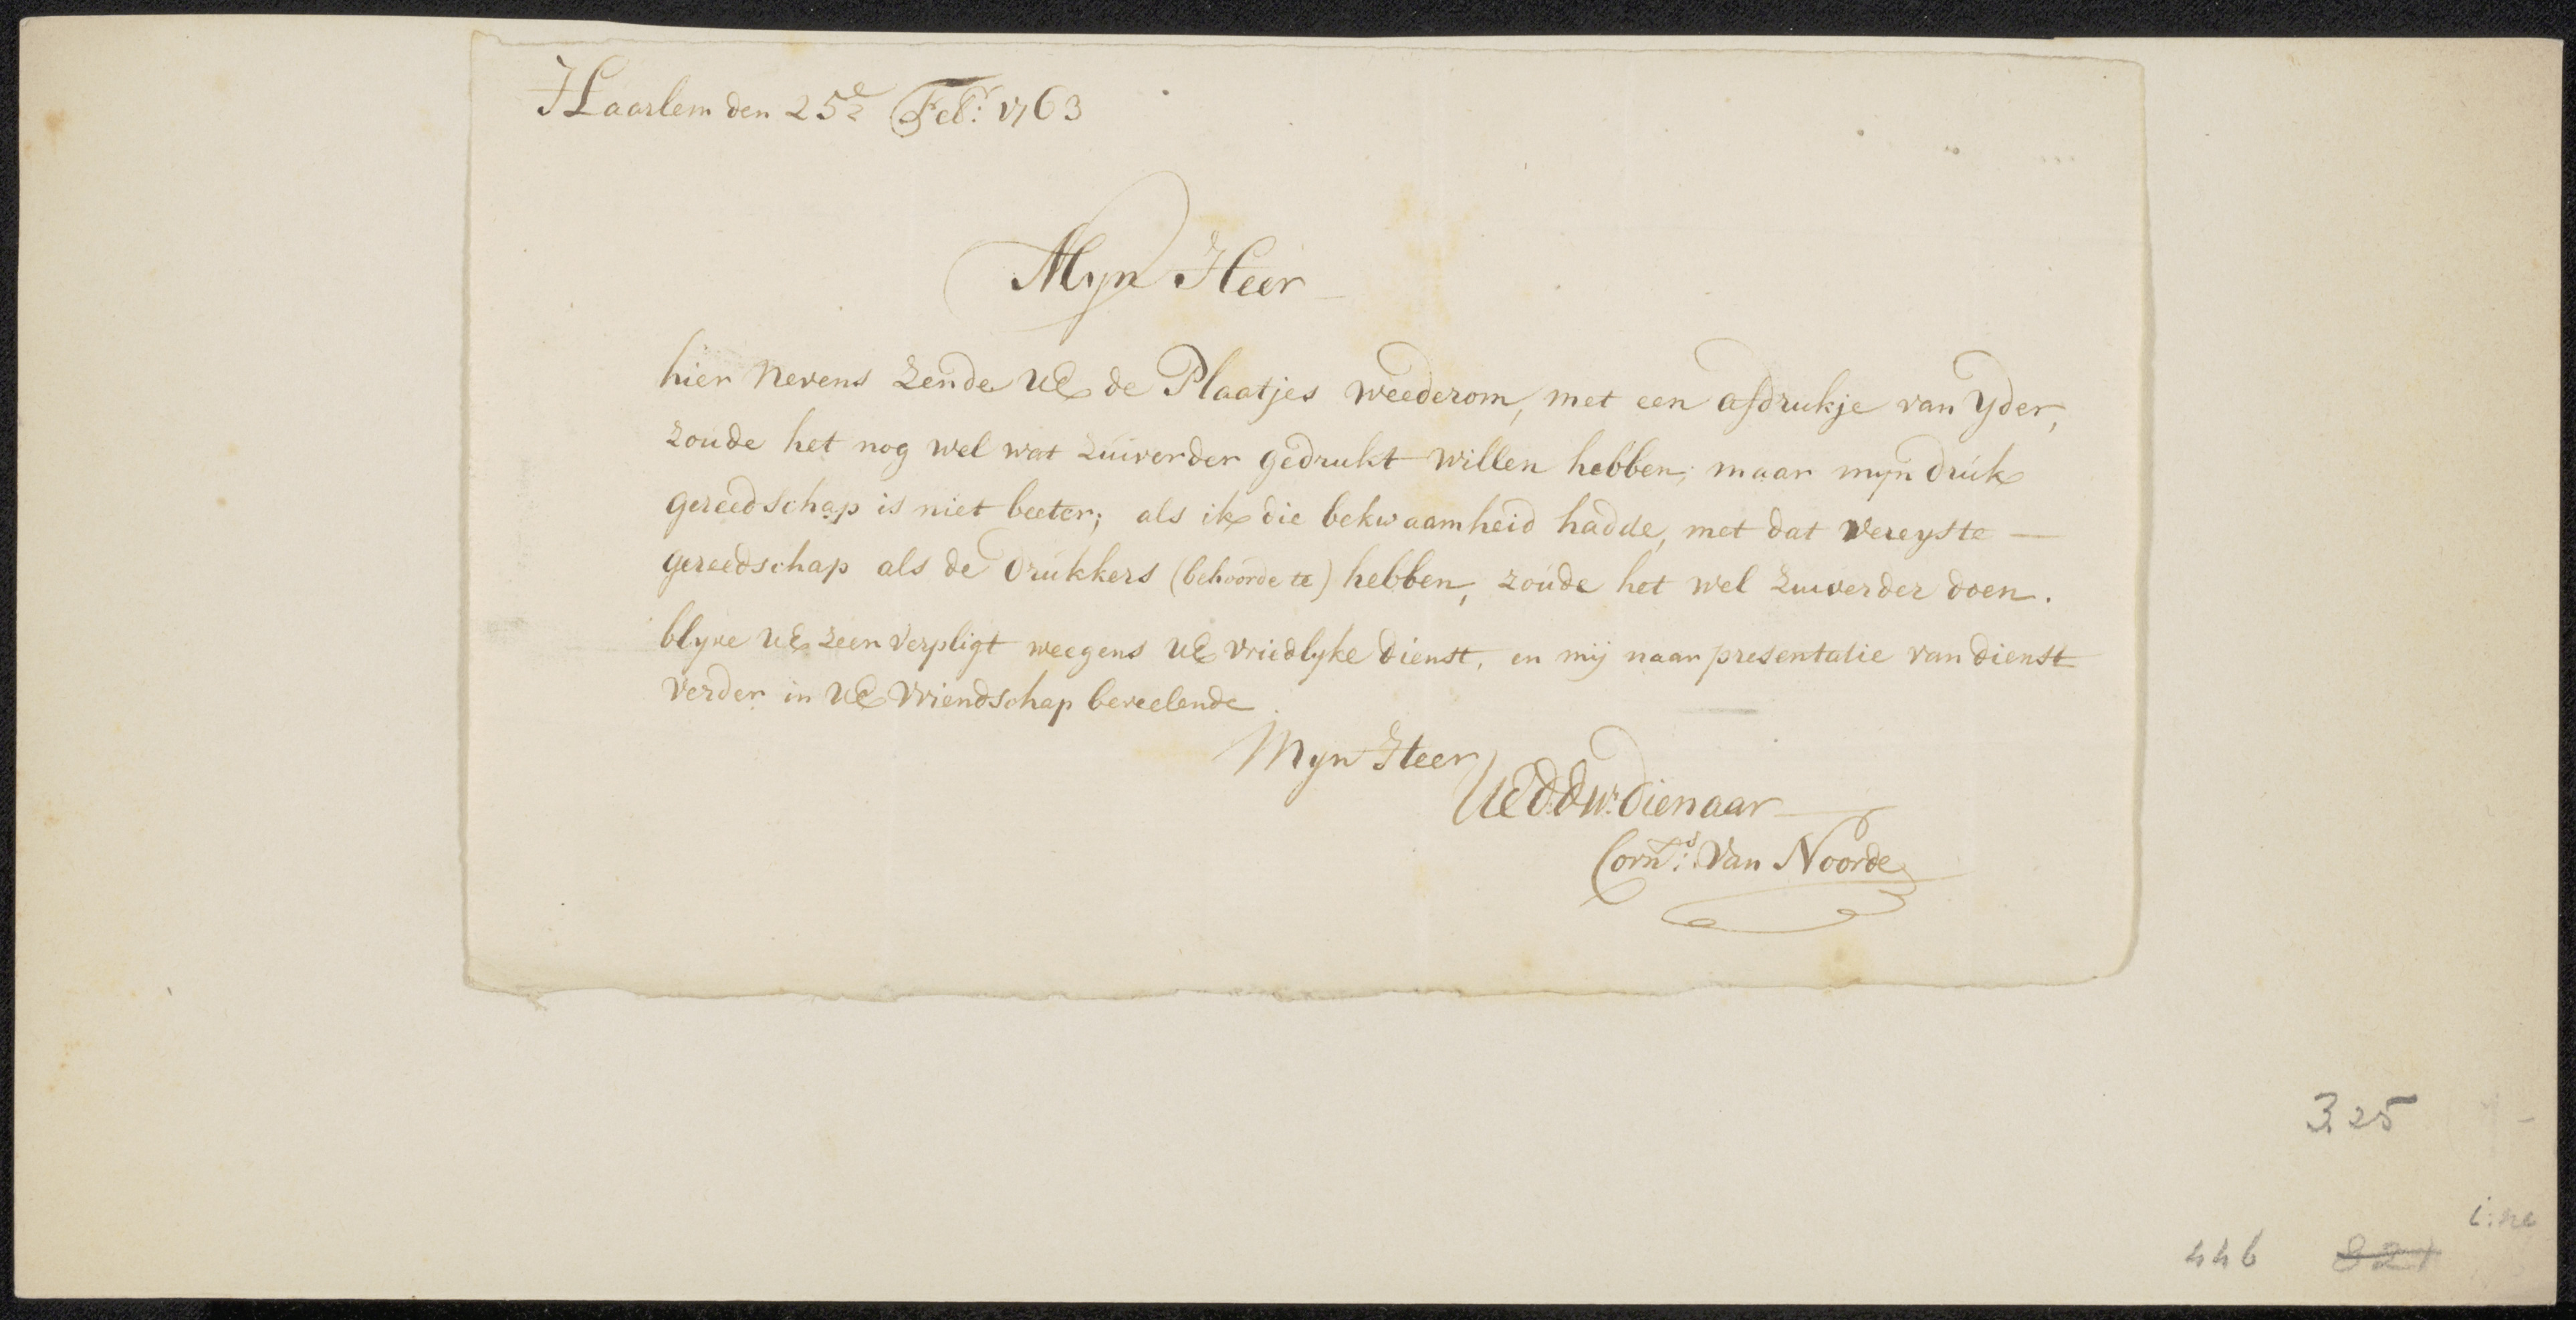 Haarlem den 25e Febr: 1763
Myn Heer
hier nevens zende UE de Plaatjes weederom, met een afdrukje van yder,
zoude het nog wel wat zuiverder gedrukt willen hebben, maar myn druk
gereedschap is niet beeter; als ik die bekwaamheid hadde, met dat vereyste —
gereedschap als de drukkers (behoorde te) hebben, zoude het wel zuiverder doen.
blyve UE zeer verpligt weegens UE vriedlyke dienst, en mij naar presentatie van dienst
verder in UE vriendschap beveelende
Myn Heer
UEd.dw. dienaar
Corns: van Noorde
3.25
446